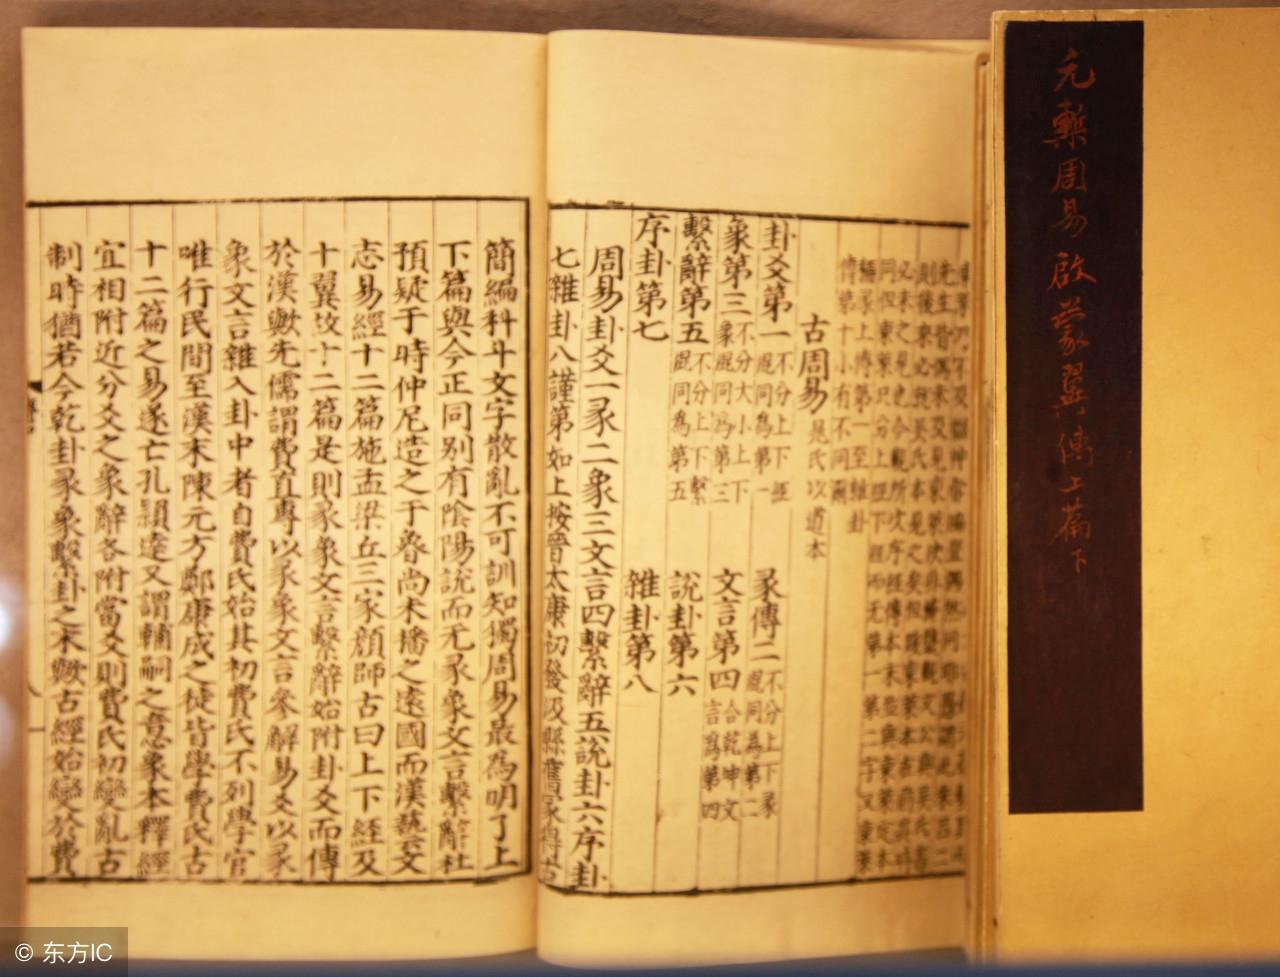 元槧周易啟蒙翼傳上篇下
古周易晁氏以道本
卦爻第一不分上下經混同為第一
彖傳二不分上下彖混同為第二
象第三不分大小上下象混同為第三
文言第四合乾坤文言為第四
繫辭第五不分上下繫混同為第五
說卦第六
序卦第七
雜卦第八
周易卦爻一彖二象三文言四繫辭五說卦六序卦
七雜卦八謹第如上按晉太康初發汲縣舊冢得古
簡編科斗文字散亂不可訓知獨周易最為明了上
下篇與今正同別有陰陽說而无彖象文言繫辭杜
預疑于時仲尼造之于魯尚未播之遠國而漢藝文
志易經十二篇施孟梁丘三家顏師古曰上下經及
十翼故十二篇是則彖象文言繫辭始附卦爻而傳
於漢歟先儒謂費直專以彖象文言參解易爻以彖
象文言雜入卦中者自費氏始其初費氏不列學官
唯行民間至漢末陳元方鄭康成之徒皆學費氏古
十二篇之易遂亡孔穎達又謂輔嗣之意象本釋經
宜相附近分爻之象辭各附當爻則費氏初變亂古
制時猶若今乾卦彖象繫卦之末歟古經始變於費
© 东方IC